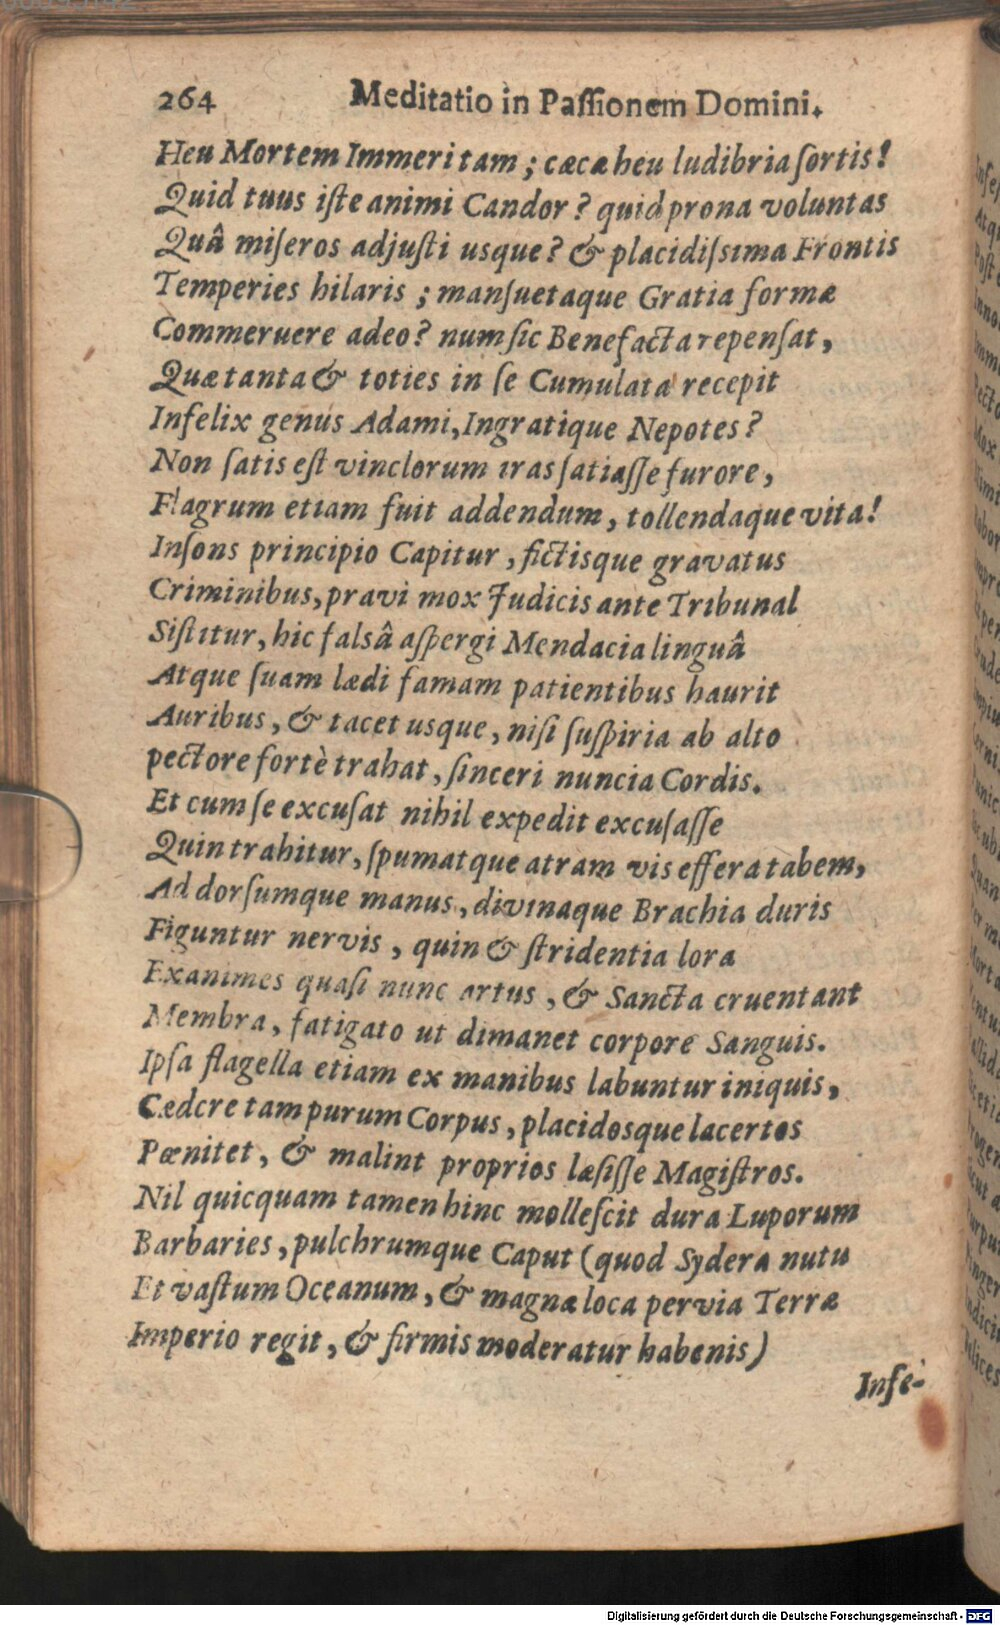 264 Meditatio in Paſſionem Domini.
Heu Mortem Immeritam; cæcæ heu ludibria ſortis!
Quid tuus iſte animi Candor? quid prona voluntas
Quâ miſeros adjuſti usque? & placidiſsima Frontis
Temperies hilaris; manſuetaque Gratia formæ
Commeruere adeo? num ſic Benefacta repenſat,
Quæ tanta & toties in ſe Cumulata recepit
Infelix genus Adami, Ingratique Nepotes?
Non ſatis eſt vinclorum iras ſatiaſſe furore,
Flagrum etiam fuit addendum, tollendaque vita!
Inſons principio Capitur, fictisque gravatus
Criminibus, pravi mox Judicis ante Tribunal
Siſtitur, hic falsâ aſpergi Mendacia linguâ
Atque ſuam lædi famam patientibus haurit
Auribus, & tacet usque, niſi ſuſpiria ab alto
pectore fortè trahat, ſinceri nuncia Cordis.
Et cum ſe excuſat nihil expedit excuſaſſe
Quin trahitur, ſpumatque atram vis effera tabem,
Ad dorſumque manus, divinaque Brachia duris
Figuntur nervis, quin & ſtridentia lora
Exanimes quaſi nunc artus, & Sancta cruentant
Membra, fatigato ut dimanet corpore Sanguis.
Ipſa flagella etiam ex manibus labuntur iniquis,
Cædere tam purum Corpus, placidosque lacertos
Pœnitet, & malint proprios læſiſſe Magiſtros.
Nil quicquam tamen hinc molleſcit dura Luporum
Barbaries, pulchrumque Caput (quod Sydera nutu
Et vaſtum Oceanum, & magnæ loca pervia Terræ
Imperio regit, & firmis moderatur habenis)
Infe-
Digitalisierung gefördert durch die Deutsche Forschungsgemeinschaft - DFG